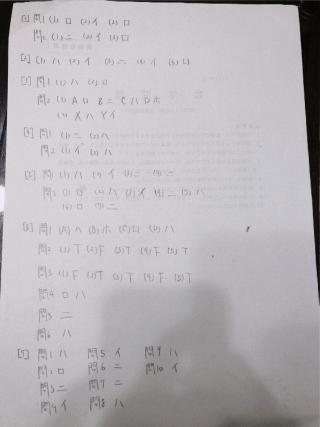 [1] 問1 (1) ロ (2) イ (3) ロ
問2 (1) ニ (2) イ (3) ロ
[2] (1) ハ (2) イ (3) ニ (4) イ (5) ロ
[3] 問1 (1) ハ (2) ロ
問2 (1) A ロ B ニ C ハ D ホ
(2) X ハ Y イ
[4] 問1 (1) ニ (2) ハ
問2 (1) イ (2) ハ
[5] 問1 (1) ハ (2) イ (3) ニ (4) ニ
問2 (1) ロ (2) ハ (3) (4) ニ (5) ハ
(6) ロ (7) ニ
[6] 問1 (A) ハ (B) ホ (C) ロ (D) ハ
問2 (1) T (2) F (3) T (4) F (5) T
問3 (1) F (2) T (3) T (4) F (5) T
問4 ロ ハ
問5 ニ
問6 ハ
[7] 問1 ハ 問5 イ 問9 ハ
問2 ロ 問6 ニ 問10 イ
問3 ニ 問7 ニ
問4 イ 問8 ハ